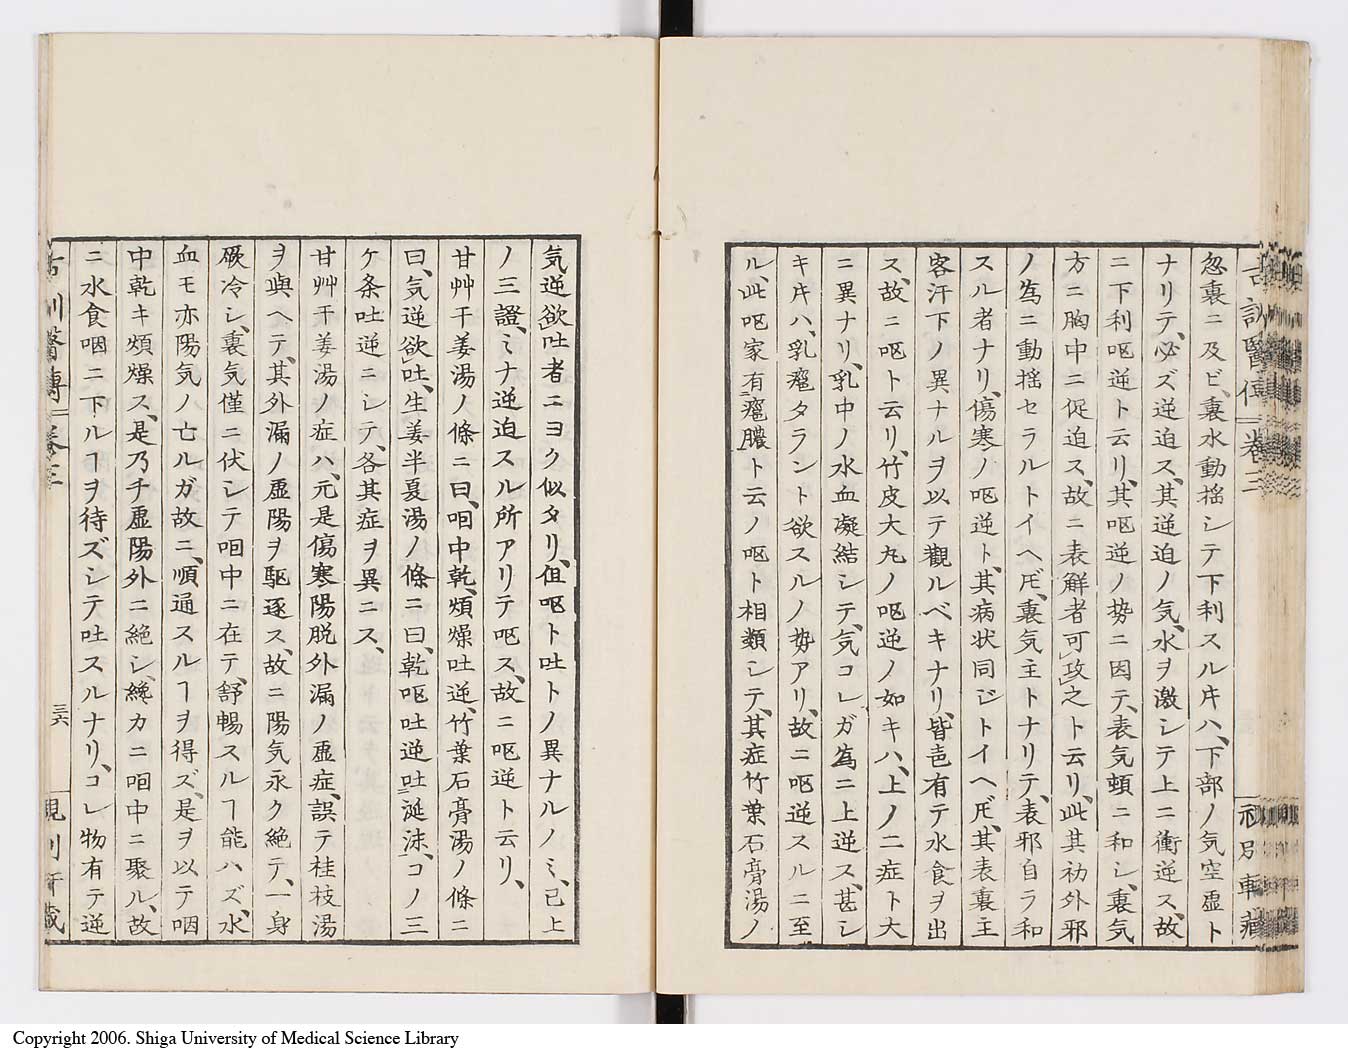 古訓醫傳 卷三
忽裏ニ及ビ、裏水動揺シテ下利スル片ハ、下部ノ気空虚ト
ナリテ、必ズ逆迫ス、其逆迫ノ気、水ヲ激シテ上ニ衝逆ス、故
ニ下利呕逆ト云リ、其呕逆ノ势ニ因テ、表気頓ニ和シ、裏気
方ニ胸中ニ促迫ス、故ニ表解者可攻之ト云リ、此其初外邪
ノ為ニ動揺セラルトイヘ𪜈、裏気主トナリテ、表邪自ラ和
スル者ナリ、傷寒ノ呕逆ト、其病状同ジトイヘ𪜈、其表裏主
客汗下ノ異ナルヲ以テ觀ルベキナリ、皆邑有テ水食ヲ出
ス、故ニ呕ト云リ、竹皮大丸ノ呕逆ノ如キハ、上ノ二症ト大
ニ異ナリ、乳中ノ水血凝結シテ、気コレガ為ニ上逆ス、甚シ
キ片ハ、乳癰タラント欲スルノ势アリ、故ニ呕逆スルニ至
ル、此呕家有癰膿ト云ノ呕ト相類シテ、其症竹葉石膏湯ノ
気逆欲吐者ニヨク似タリ、但呕ト吐トノ異ナルノミ、已上
ノ三證、ミナ逆迫スル所アリテ呕ス、故ニ呕逆ト云リ、
甘艸干姜湯ノ條ニ曰、咽中乾、煩燥吐逆、竹葉石膏湯ノ條ニ
曰、気逆欲吐、生姜半夏湯ノ條ニ曰、乾呕吐逆吐涎沫、コノ三
ケ条吐逆ニシテ、各其症ヲ異ニス、
甘艸干姜湯ノ症ハ、元是傷寒陽脱外漏ノ虚症、誤テ桂枝湯
ヲ與ヘテ、其外漏ノ虚陽ヲ駆逐ス、故ニ陽気永ク絶テ、一身
厥冷シ、裏気僅ニ伏シテ咽中ニ在テ、舒暢スルヿ能ハズ、水
血モ亦陽気ノ亡ルガ故ニ、順通スルヿヲ得ズ、是ヲ以テ咽
中乾キ煩燥ス、是乃チ虚陽外ニ絶シ、纔カニ咽中ニ聚ル、故
ニ水食咽ニ下ルヿヲ待ズシテ吐スルナリ、コレ物有テ逆
三六